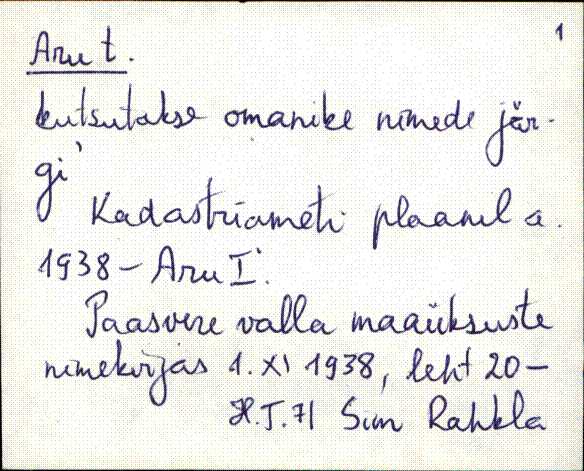 1
Aru t.
kutsutakse omanike nimede jär-
gi
Kadastriameti plaanil a.
1938 – Aru I.
Paasvere valla maaüksuste
nimekirjas 1. XI 1938, leht 20 –
H.T.71 Sim Rahkla